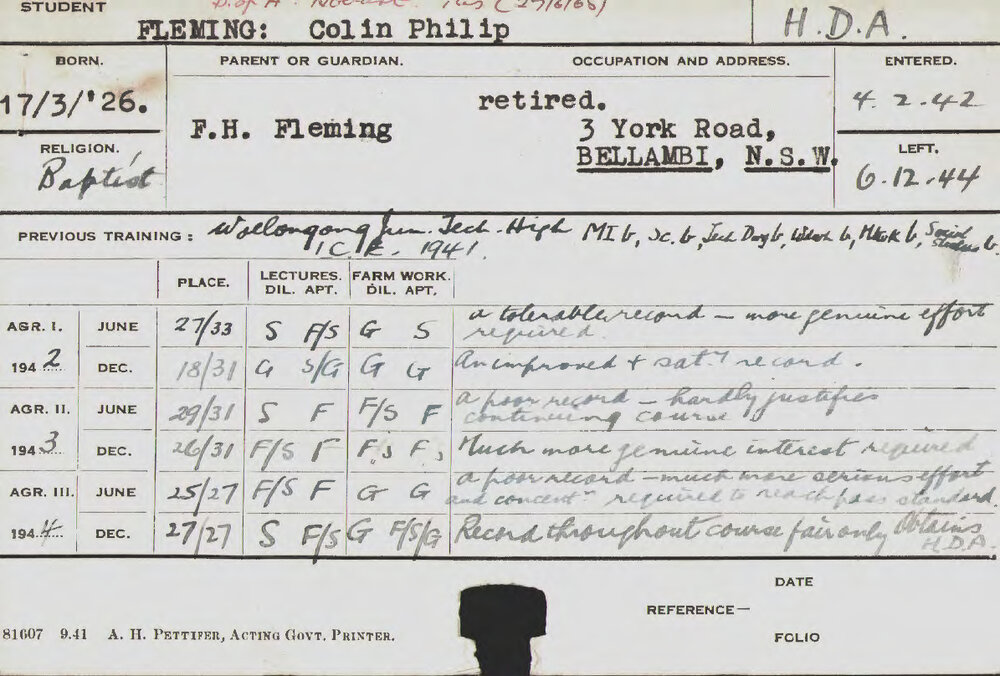 STUDENT D. of A. (27/6/66)
FLEMING: Colin Philip H.D.A.
BORN. PARENT OR GUARDIAN. OCCUPATION AND ADDRESS. ENTERED.
17/3/'26. retired. 4.2.42
F.H. Fleming 3 York Road,
RELIGION. BELLAMBI, N.S.W. LEFT.
Baptist 6.12.44
PREVIOUS TRAINING: Wollongong Jun. Tech. High MI b, Sc. b, Tech Dwg b, b, b, Social Studies b.
I.C.E. 1941.
PLACE. LECTURES. FARM WORK.
DIL. APT. DIL. APT.
AGR. I. JUNE 27/33 S F/S G S a tolerable record — more genuine effort
required.
1942 DEC. 18/31 G S/G G G An improved + sat.y record.
AGR. II. JUNE 29/31 S F F/S F a poor record — hardly justifies
continuing course
1943 DEC. 26/31 F/S F F.S F. Much more genuine interest required
AGR. III. JUNE 25/27 F/S F G G a poor record — much more serious effort
and concent.n required to reach pass standard.
1944 DEC. 27/27 S F/S G F/S/G Record throughout course fair only Obtains
H.D.A.
DATE
REFERENCE—
81607 9.41 A. H. PETTIFER, ACTING GOVT. PRINTER.
FOLIO